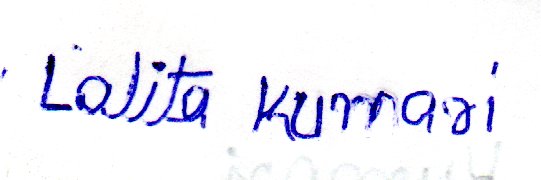 Lalita Kumari